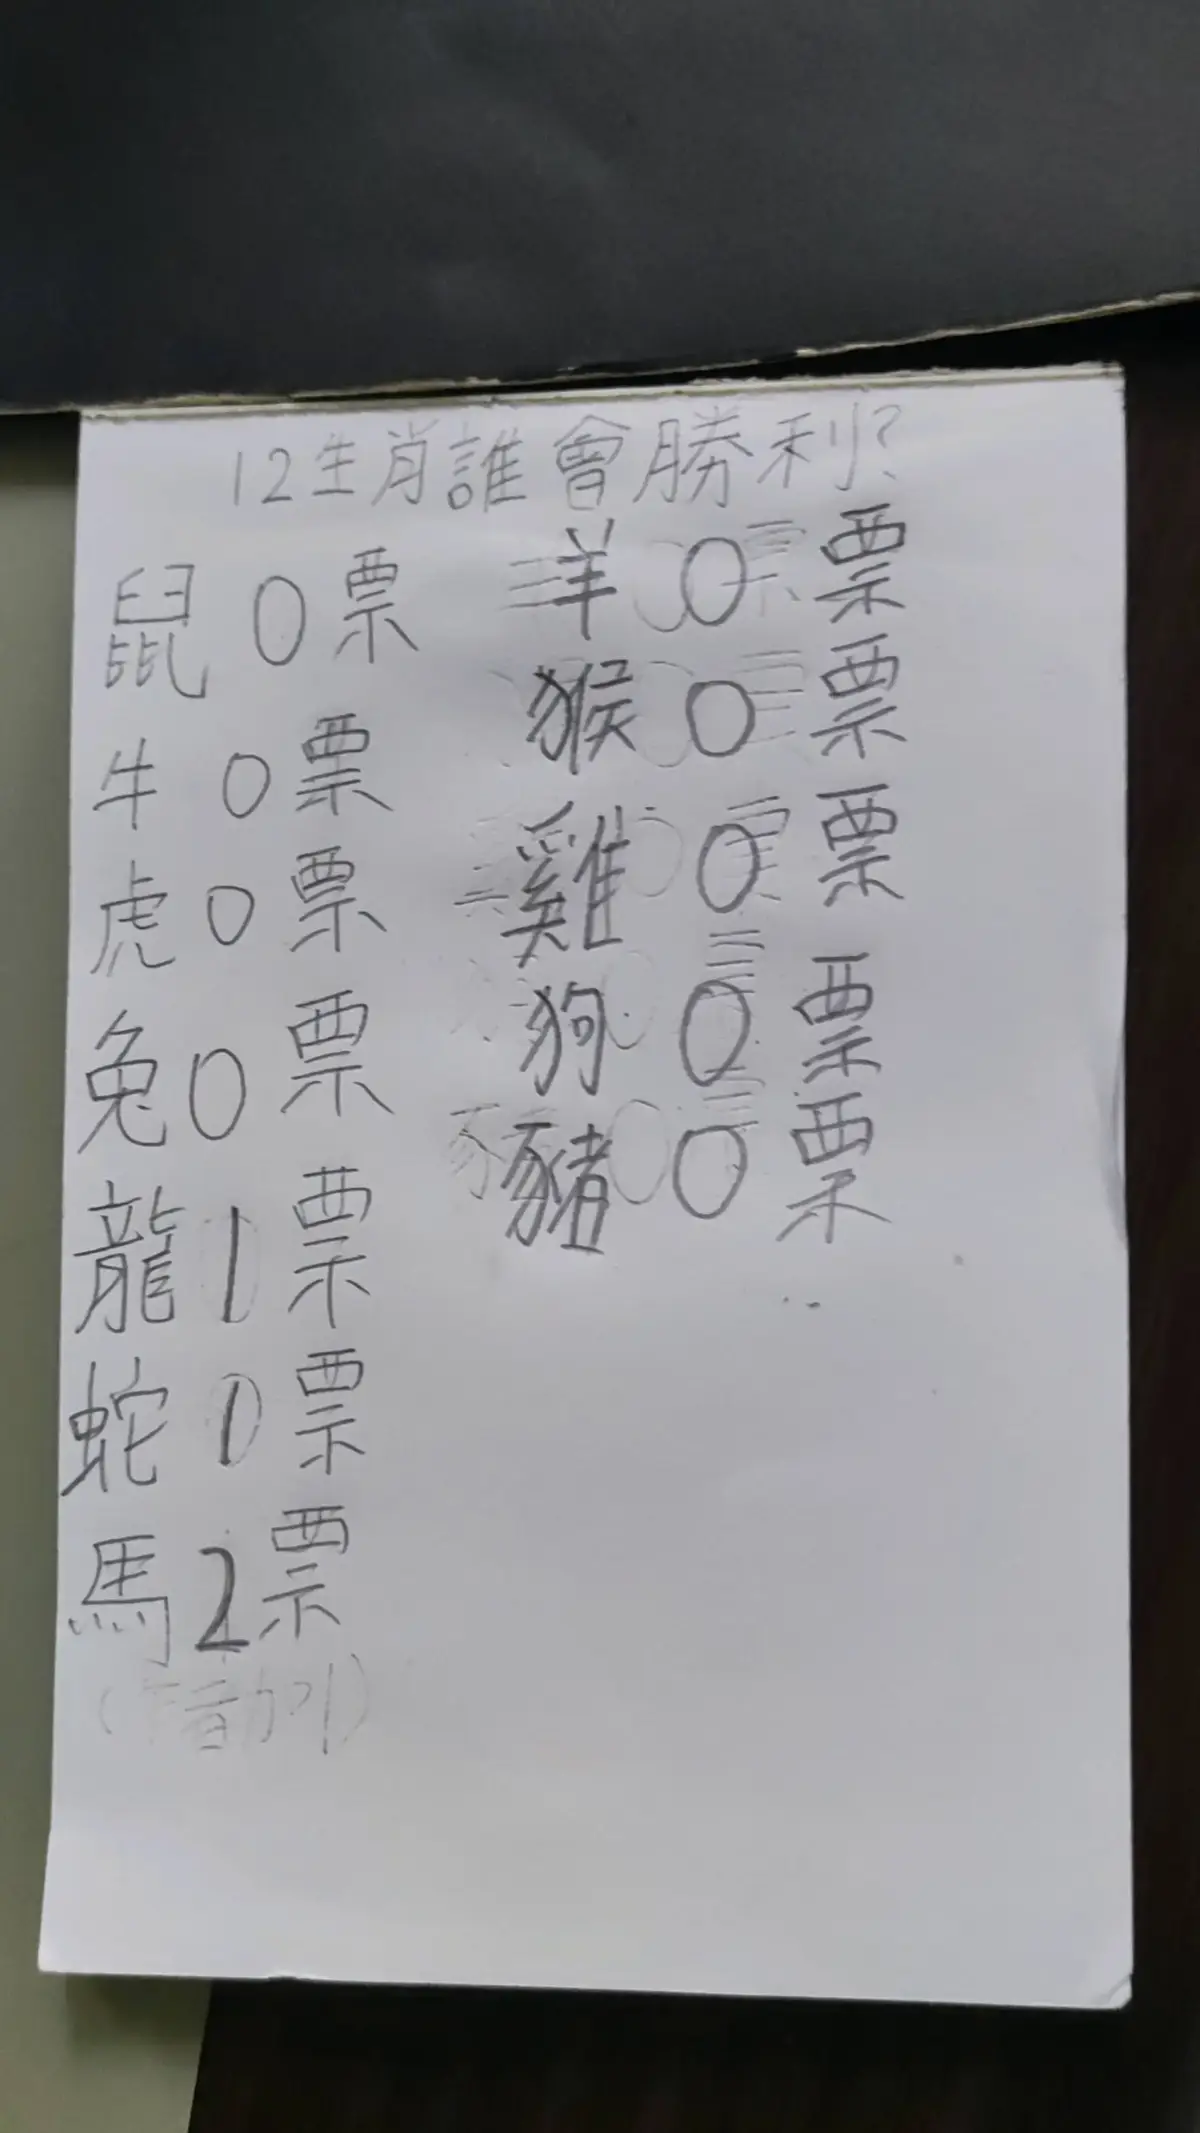 12生肖誰會勝利?
鼠 0 票
牛 0 票
虎 0 票
兔 0 票
龍 1 票
蛇 1 票
馬 2 票
羊 0 票
猴 0 票
雞 0 票
狗 0 票
豬 0 票